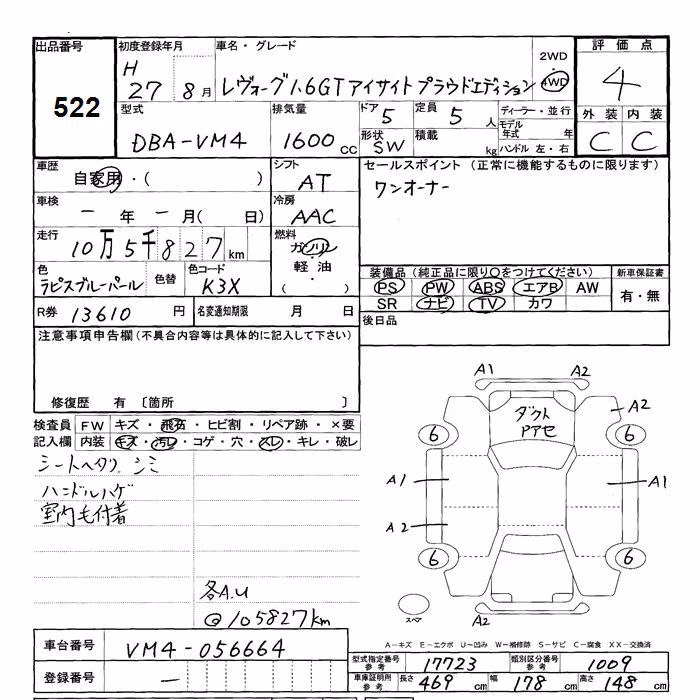 出品番号 初度登録年月 車名・グレード 2WD 評価点
522 H 27 8月 レヴォーグ1.6GTアイサイト プラウドエディション 4WD 4
型式 排気量 ドア 5 定員 5人 ディーラー・並行 外装 内装
DBA-VM4 1600cc 形状 SW 積載 kg モデル年式 年 ハンドル 左・右 C C
車歴 シフト セールスポイント (正常に機能するものに限ります)
自家用・( ) AT ワンオーナー
車検 冷房
一年 一月( 日) AAC
走行 燃料
10万5千827km ガソリン
軽油
・( )
色 色替 色コード 装備品(純正品に限り○をつけてください) 新車保証書
ラピスブルーパール K3X PS PW ABS エアB AW 有・無
SR ナビ TV カワ
R券 13610円 名変通知期限 月 日 後日品
注意事項申告欄(不具合内容等は具体的に記入して下さい)
修復歴 有 〔箇所 〕
検査員 FW キズ・飛石・ヒビ割・リペア跡・×要
記入欄 内装 キズ・汚レ・コゲ・穴・スレ・キレ・破レ
シートヘタリ シミ
ハンドルハゲ
室内毛付着
各A.U
@105827km
A1 A2
ダクト A2
アアセ
6 6
A1 A1
A2
6 6
スペア A2
A-キズ E-エクボ U-凹み W-補修跡 S-サビ C-腐食 XX-交換済
車台番号 VM4-056664
型式指定番号 参考 17723 類別区分番号 参考 1009
登録番号 一
車庫証明用 参考 長さ 469cm 幅 178cm 高さ 148cm